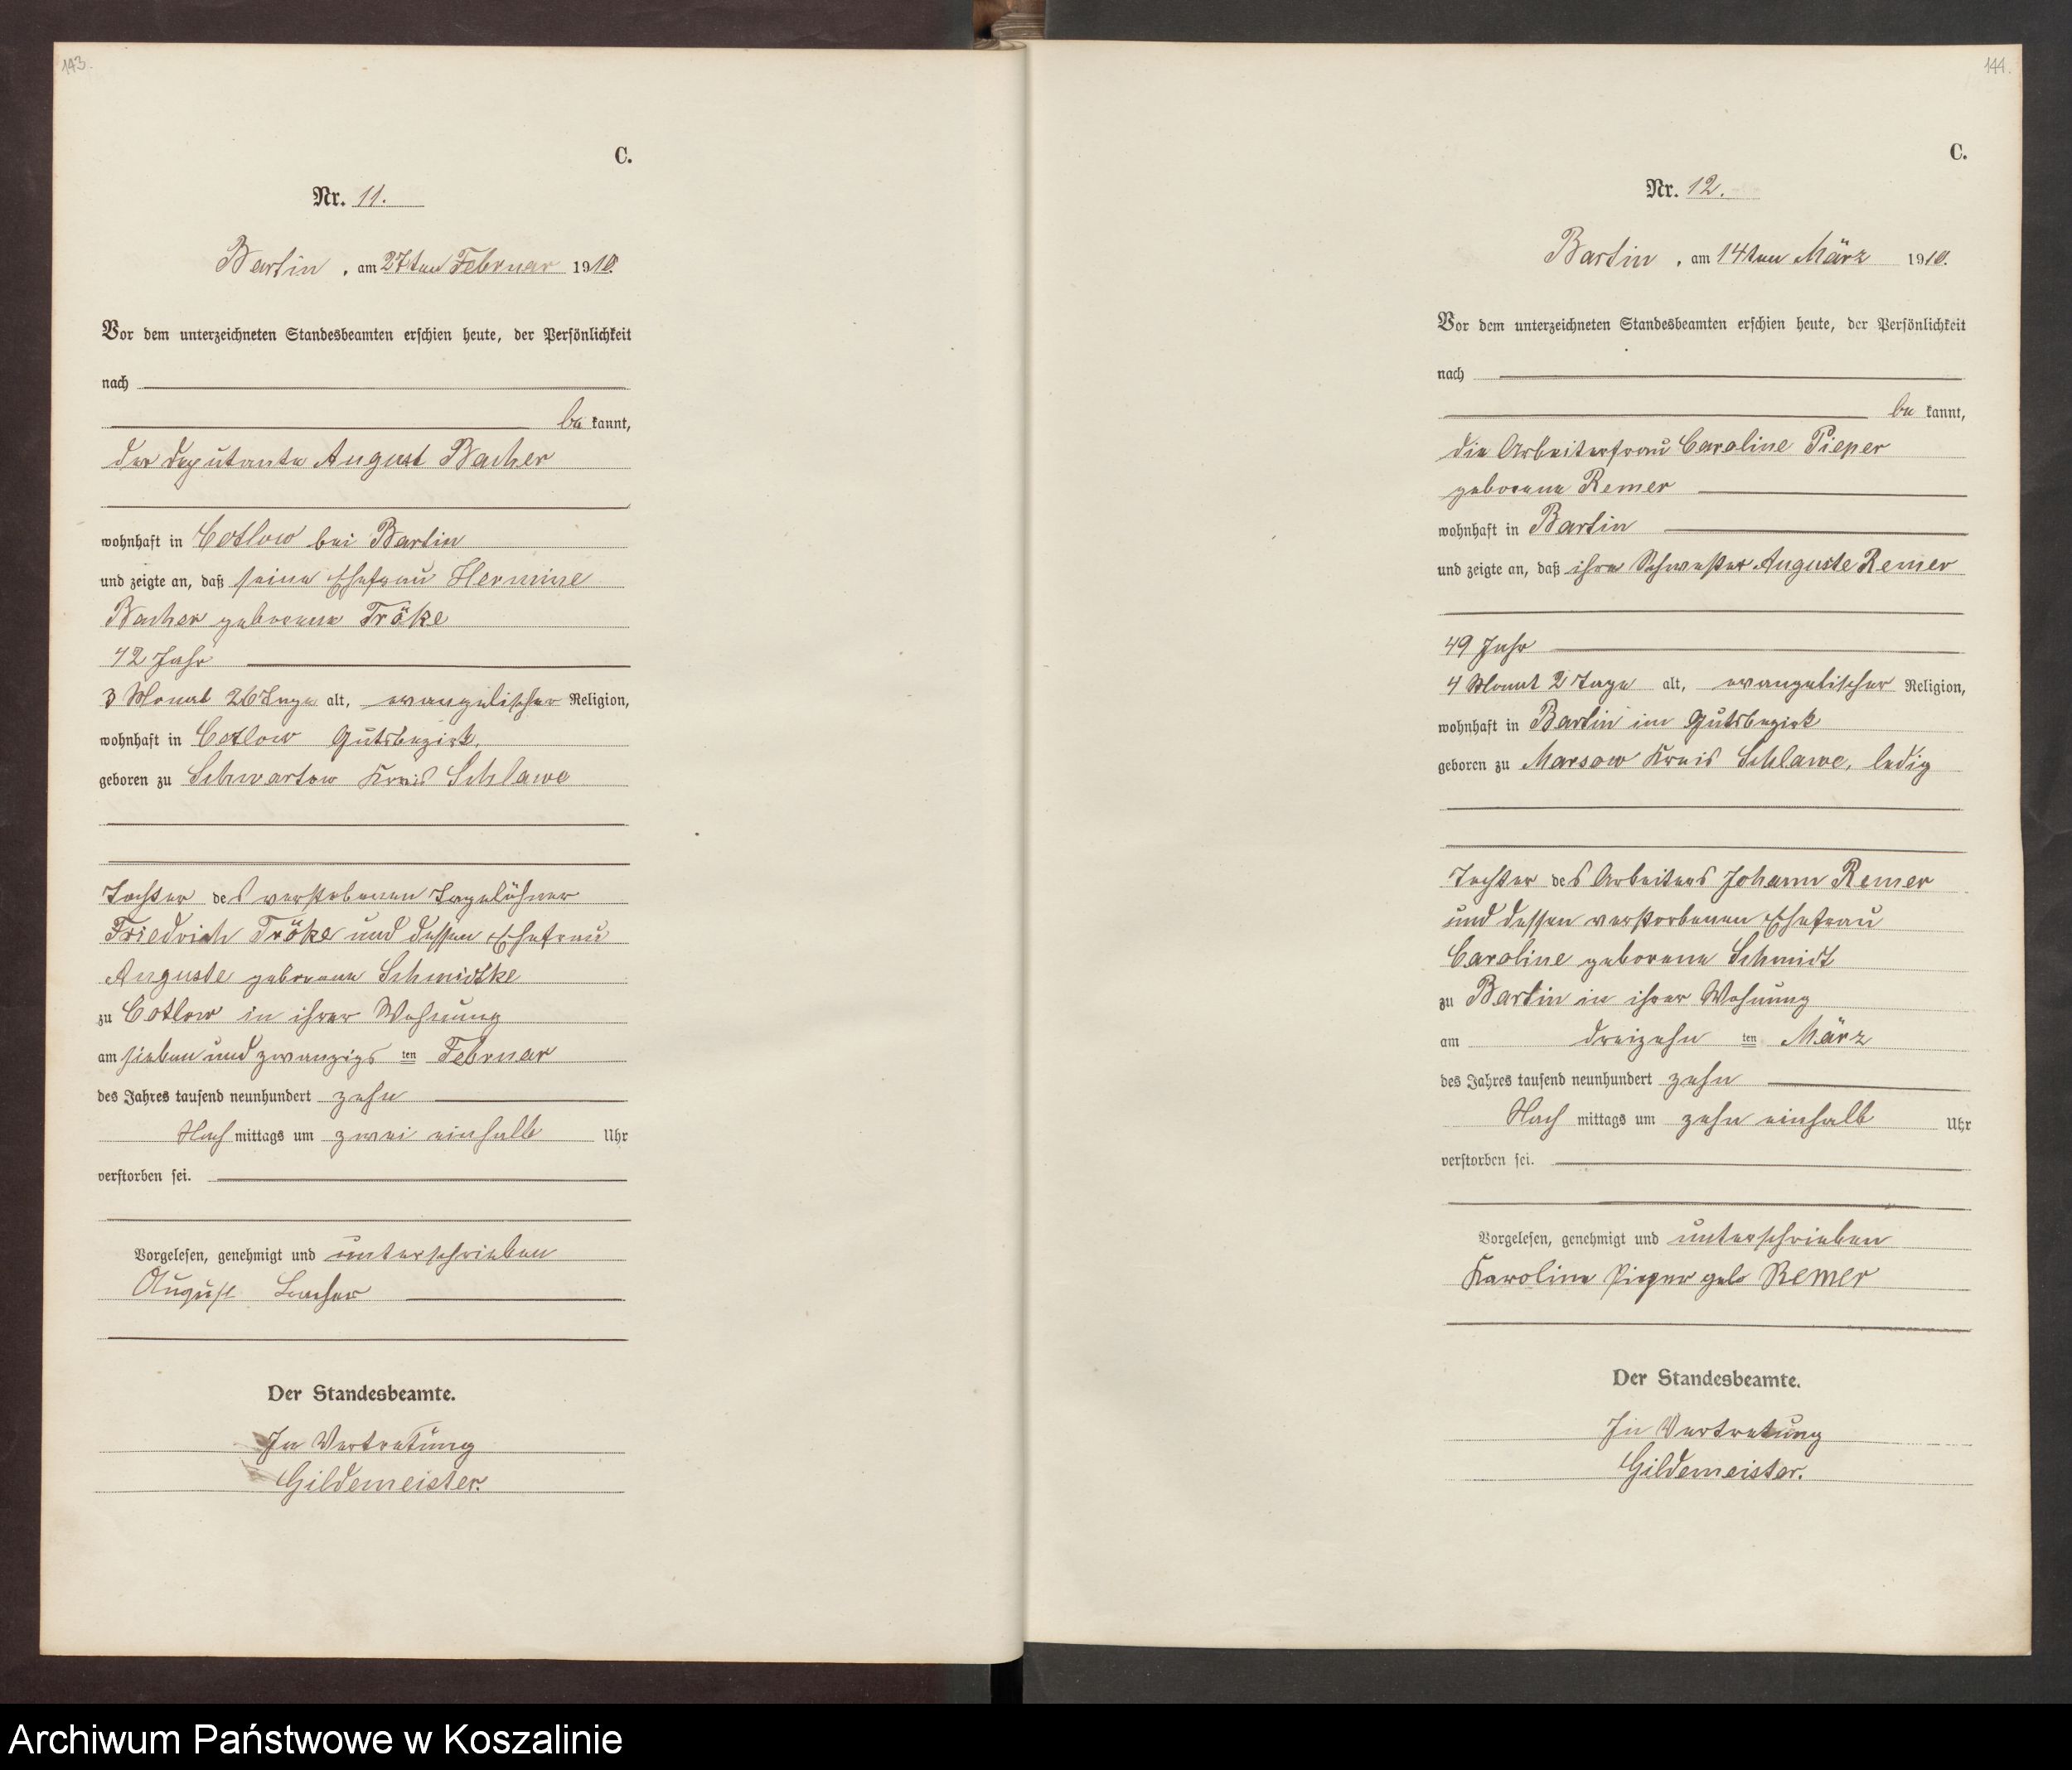 143.
C.
Nr. 11.
Bartin, am 27ten Februar 1910.
Vor dem unterzeichneten Standesbeamten erschien heute, der Persönlichkeit
nach
be kannt,
der Deputante August Bacher
wohnhaft in Cotlow bei Bartin
und zeigte an, daß seine Ehefrau Hermine
Bacher geborene Tröke
42 Jahr
3 Monat 26 Tage alt, evangelischer Religion,
wohnhaft in Cotlow Gutsbezirk,
geboren zu Schwartow Kreis Schlawe
Tochter des verstobenen Tagelöhner
Friedrich Tröke und dessen Ehefrau
Auguste geborene Schmidtke
zu Cotlow in ihrer Wohnung
am sieben und zwanzigs ten Februar
des Jahres tausend neunhundert zehn
Nach mittags um zwei einhalb Uhr
verstorben sei.
Vorgelesen, genehmigt und unterschrieben
August Bacher
Der Standesbeamte.
In Vertretung
Gildemeister.
144.
C.
Nr. 12.
Bartin, am 14ten März 1910.
Vor dem unterzeichneten Standesbeamten erschien heute, der Persönlichkeit
nach
be kannt,
die Arbeiterfrau Caroline Pieper
geborene Remer
wohnhaft in Bartin
und zeigte an, daß ihre Schwester Auguste Remer
49 Jahr
4 Monat 2 Tage alt, evangelischer Religion,
wohnhaft in Bartin im Gutsbezirk
geboren zu Marsow Kreis Schlawe, ledig
Tochter des Arbeiters Johann Remer
und dessen verstorbenen Ehefrau
Caroline geborene Schmidt
zu Bartin in ihrer Wohnung
am dreizehn ten März
des Jahres tausend neunhundert zehn
Nach mittags um zehn einhalb Uhr
verstorben sei.
Vorgelesen, genehmigt und unterschrieben
Karoline Pieper geb Remer
Der Standesbeamte.
In Vertretung
Gildemeister.
Archiwum Państwowe w Koszalinie